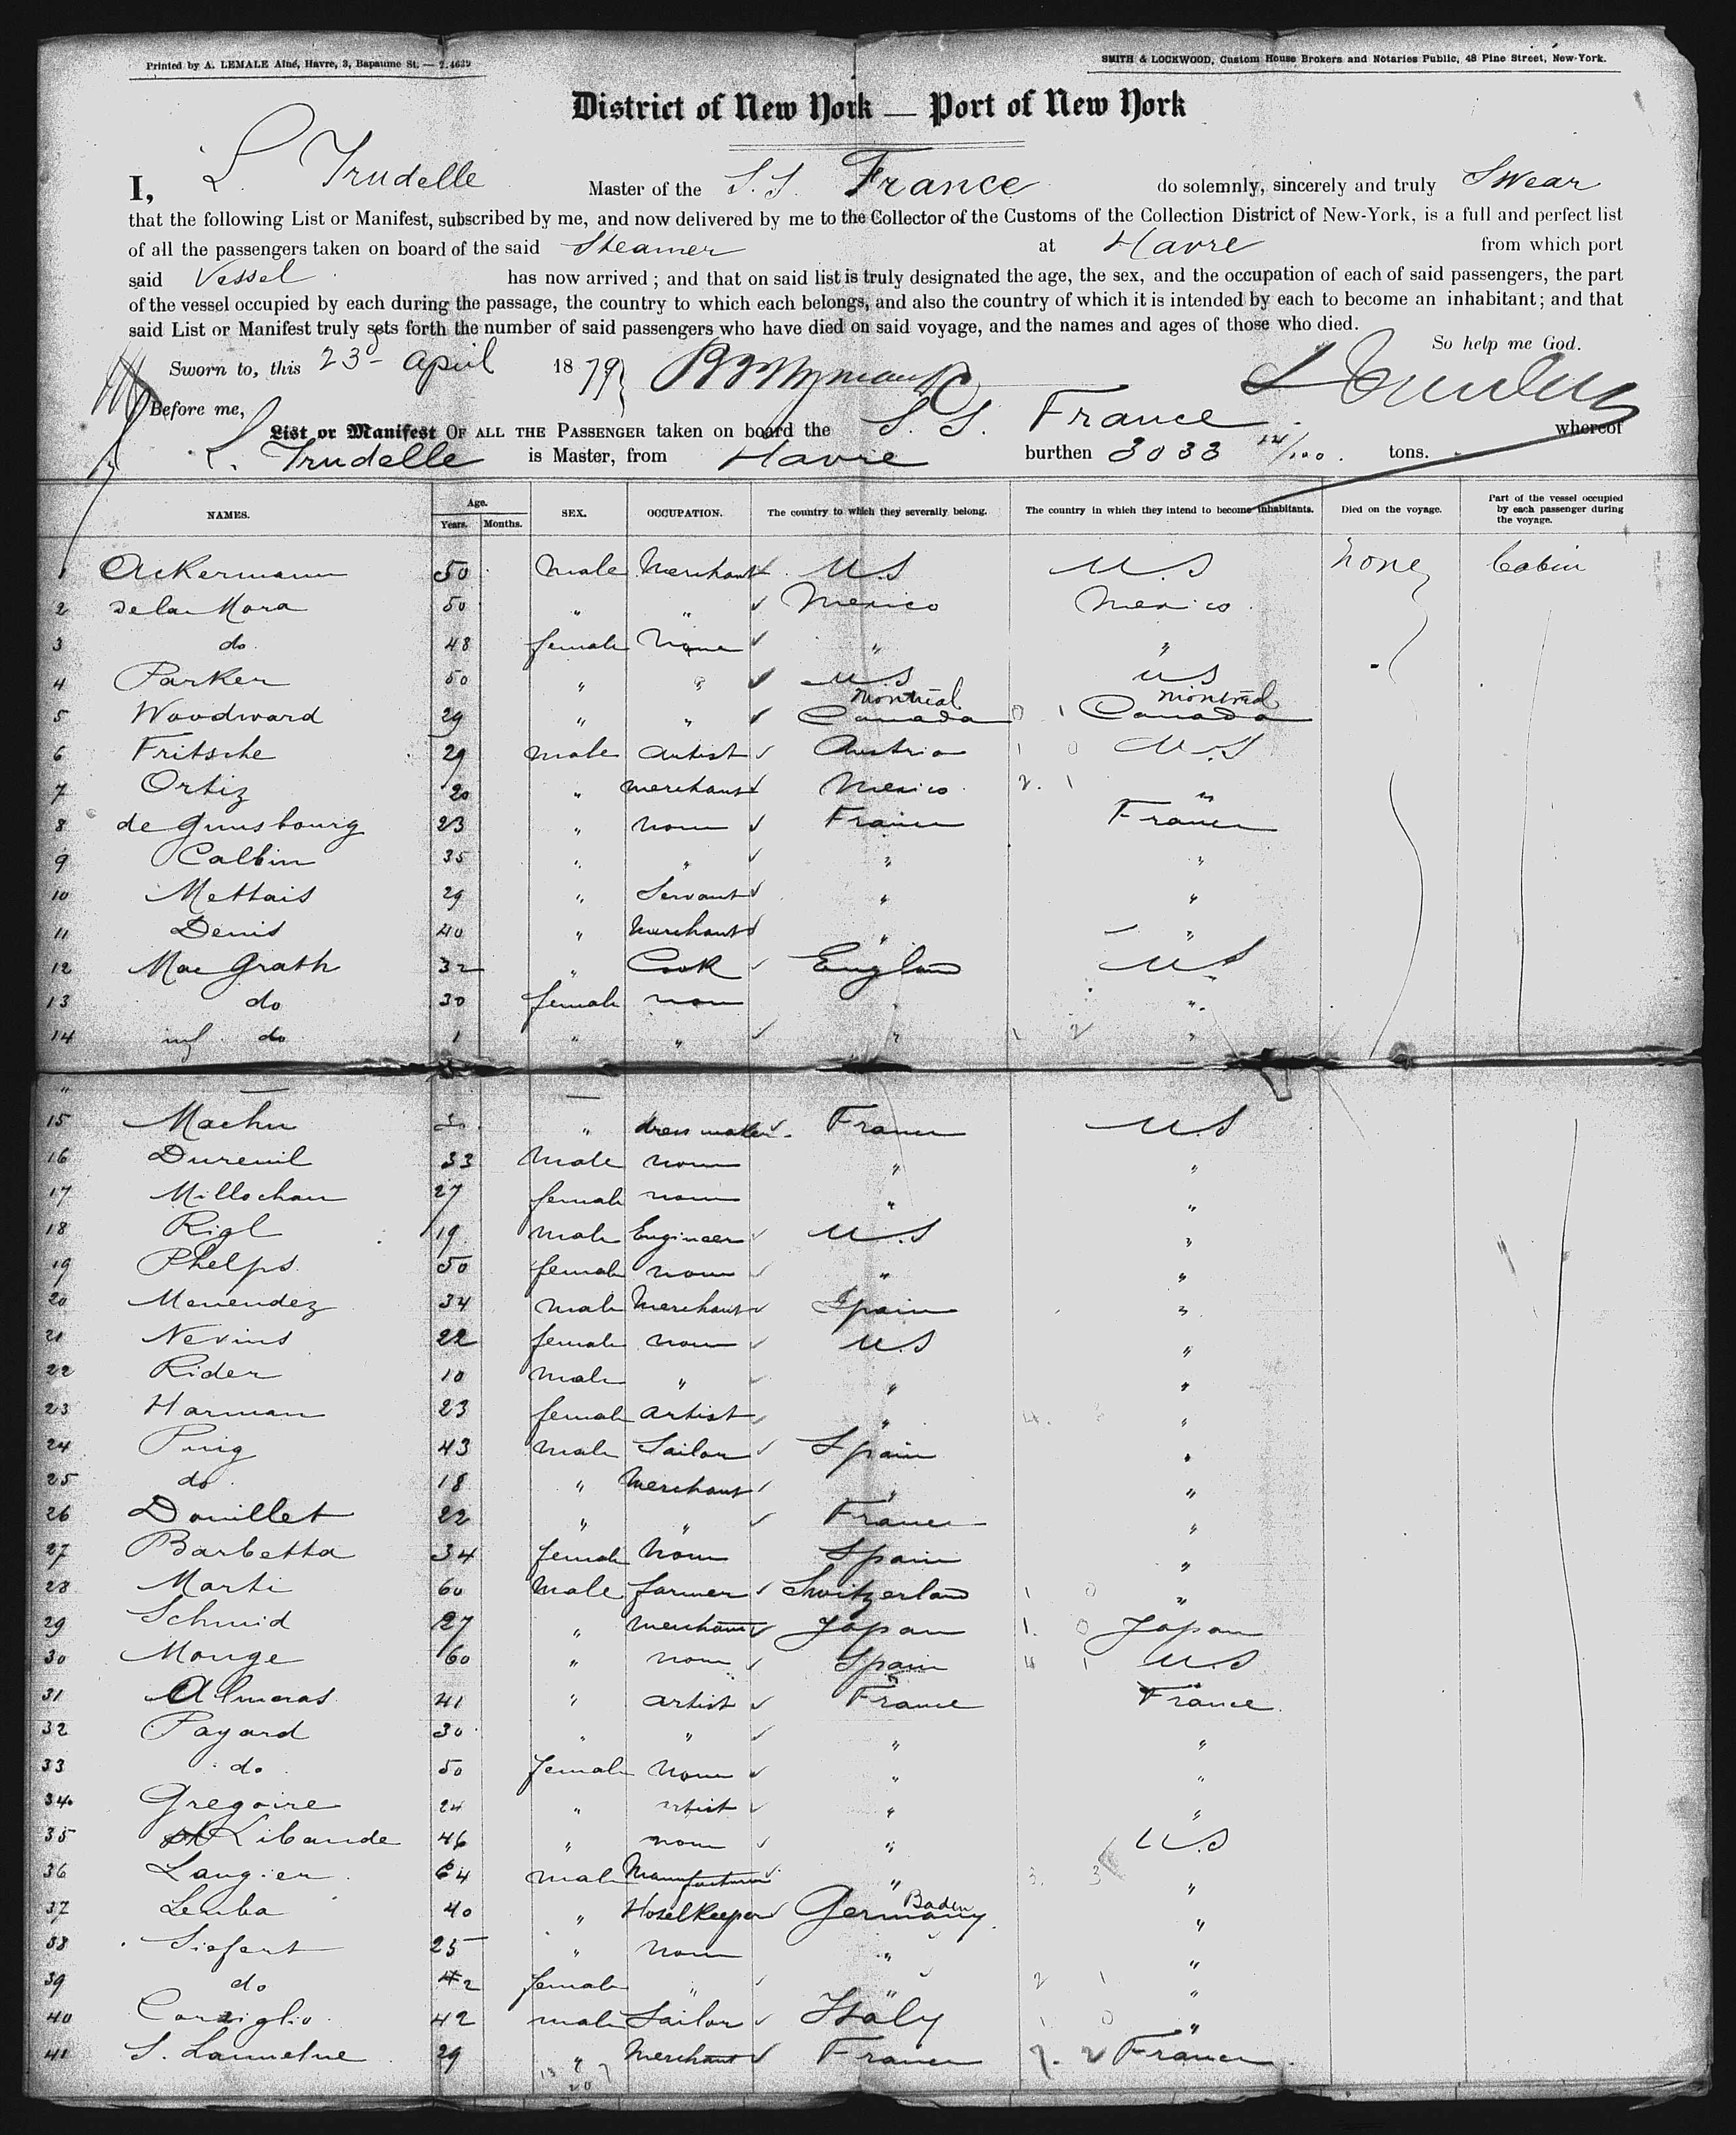 Printed by A. LEMALE Aîné, Havre, 3, Bapaume St. — 2.4639
SMITH & LOCKWOOD, Custom House Brokers and Notaries Public, 48 Pine Street, New-York.
District of New York — Port of New York
I, L. Trudelle Master of the S.S. France do solemnly, sincerely and truly Swear
that the following List or Manifest, subscribed by me, and now delivered by me to the Collector of the Customs of the Collection District of New-York, is a full and perfect list
of all the passengers taken on board of the said Steamer at Havre from which port
said Vessel has now arrived ; and that on said list is truly designated the age, the sex, and the occupation of each of said passengers, the part
of the vessel occupied by each during the passage, the country to which each belongs, and also the country of which it is intended by each to become an inhabitant; and that
said List or Manifest truly sets forth the number of said passengers who have died on said voyage, and the names and ages of those who died.
So help me God.
Sworn to, this 23 April 1879
Before me,
List or Manifest OF ALL THE PASSENGER taken on board the S. S. France whereof
L. Trudelle is Master, from Havre burthen 3033 14/100 tons.
NAMES. Age. Years. Months. SEX. OCCUPATION. The country to which they severally belong. The country in which they intend to become inhabitants. Died on the voyage. Part of the vessel occupied by each passenger during the voyage.
1 Ackermann 50 Male Merchant U.S U.S None Cabin
2 de la Mora 50 " " Mexico Mexico
3 do 48 female None " "
4 Parker 50 " " U.S U S
5 Woodward 29 " " Montreal Canada 0 1 Montreal Canada
6 Fritsche 29 male artist Austria 1 0 U.S
7 Ortiz 20 " merchant Mexico 2. 1 "
8 de Gunsbourg 23 " none France France
9 Calbin 35 " " " "
10 Mettais 29 " Servant " "
11 Denis 40 " Merchant " "
12 Mac Grath 32 " Cook England U.S
13 do 30 female none "
14 inf do 1 " " " 1 2 "
15 Machu " dress maker France U.S
16 Dureuil 33 Male none " "
17 Millochau 27 female none " "
18 Rigl 19 male Engineer U.S "
19 Phelps 50 female none " "
20 Menendez 34 male Merchant Spain "
21 Nevins 22 female none U.S "
22 Rider 10 male " " "
23 Harman 23 female artist " 4. "
24 Puig 43 male Sailor Spain "
25 do 18 " Merchant " "
26 Douillet 22 " " France "
27 Barbetta 34 female None Spain "
28 Marti 60 Male farmer Switzerland 1 0 "
29 Schmid 27 " merchant Japan 1. 0 Japan
30 Monge 60 " none Spain 4 1 U.S
31 Almeras 41 " artist France France
32 Payard 30 " " " "
33 do 50 female None " "
34 Gregoire 24 " artist " "
35 Libaude 46 " none " U.S
36 Laugier 64 male Manufacturer " 3. 3 "
37 Leuba 40 " Hotelkeeper Germany Baden "
38 Siefert 25 " None " "
39 do 42 female " 2 1 "
40 Corziglio 42 male Sailor Italy 1 0 "
41 S. Lamelue 29 " Merchant France 7. 2 France